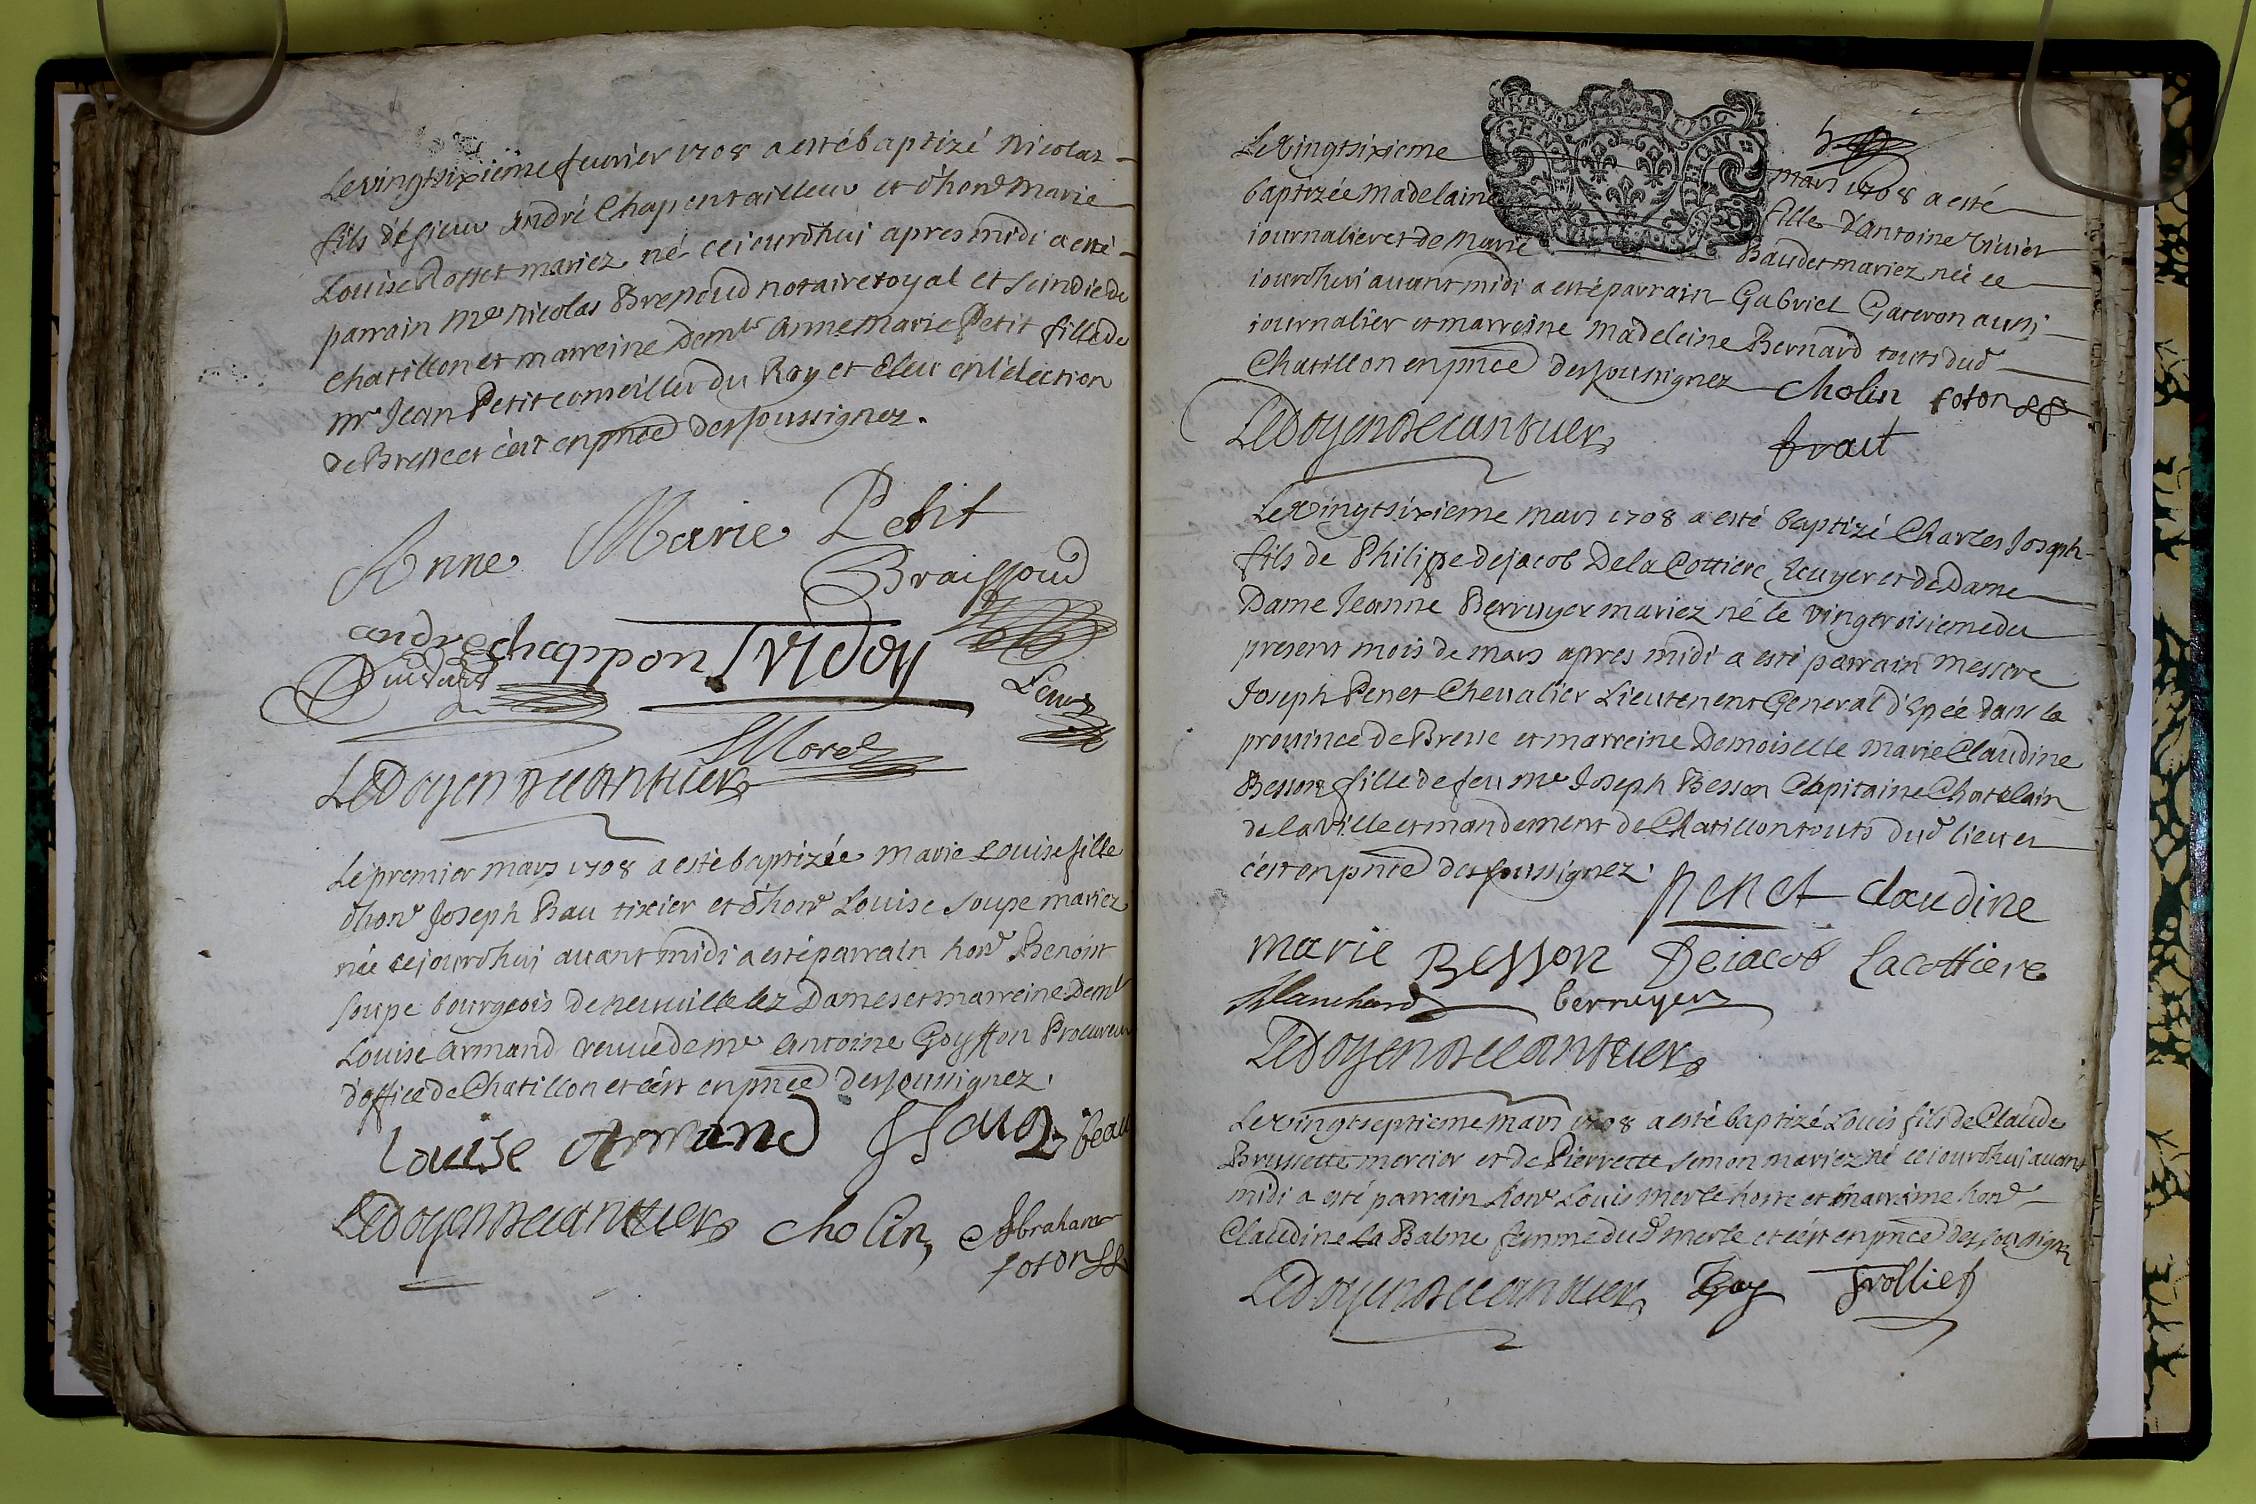 Le vingtsixieme feuvrier 1708 a esté baptizé Nicolas
fils de sieur André Chapon tailleur et d'hon^e Marie
Louise Rosset mariez né cejourdhui apres midi a esté
parrain M^e Nicolas Bressoud notaire royal et scindic de
Chatillon et marreine Dem^lle Anne Marie Petit fille de
m^r Jean Petit conseiller du Roy et Eleu en l'élection
de Bresse et c'est en pnce des soussignez.
Anne Marie Petit
Braissoud
andre chappon
Morel
Le Doyen
Le premier mars 1708 a esté baptizée Marie Louise fille
d'hon^e Joseph Bau tixier et d'hon^e Louise Soupe mariez
née cejourdhui avant midi a esté parrain hon^e Benoist
Soupe bourgeois de neuville lez Dames et marreine Dem^lle
Louise Armand veuve de m^e Antoine Goyffon Procureur
d'office de Chatillon et c'est en pnce des soussignez.
Louise Armand beau
Le Doyen cholin, Abraham
foton
1706
GEN
Le vingtsixieme mars 1708 a esté
baptizée Madelaine fille d'Antoine Vivier
journalier et de Marie Baudet mariez née ce
jourdhui avant midi a esté parrain Gabriel Gateron aussi
journalier et marreine Madeleine Bernard touts dud
Chatillon en pnce des soussignez cholin foton
Le Doyen frait
Le vingtsixieme mars 1708 a esté baptizé Charles Joseph
fils de Philippe dejacob De la Cottiere Ecuyer et de Dame
Dame Jeanne Berruyer mariez né le vingtroisieme du
present mois de mars apres midi a esté parrain messire
Joseph Penet Chevalier Lieutenent General d'Epée dans la
province de Bresse et marreine Demoiselle Marie Claudine
Besson fille de feu m^e Joseph Besson Capitaine Chatelain
de la ville et mandement de Chatillon touts dud lieu et
c'est en pnce des soussignez. penet claudine
marie Besson Dejacob Lacottiere
Blanchard berruyer
Le Doyen
Le vingtseptieme mars 1708 a esté baptizé Louis fils de Claude
Brussette mercier et de Pierrette Simon mariez né cejourdhui avant
midi a esté parrain hon^e Louis Merle hoste et marreine hon^e
Claudine La Balme femme dud Merle et c'est en pnce des soussignez
Le Doyen frollief